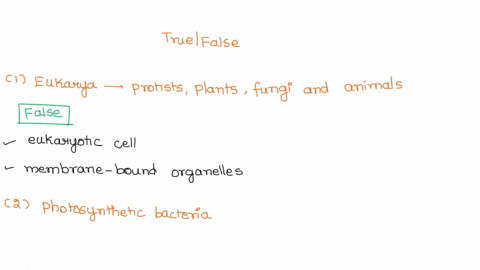 True/False
(1) Eukarya → protists, plants, fungi and animals
False
✓ eukaryotic cell
✓ membrane-bound organelles
(2) photosynthetic bacteria